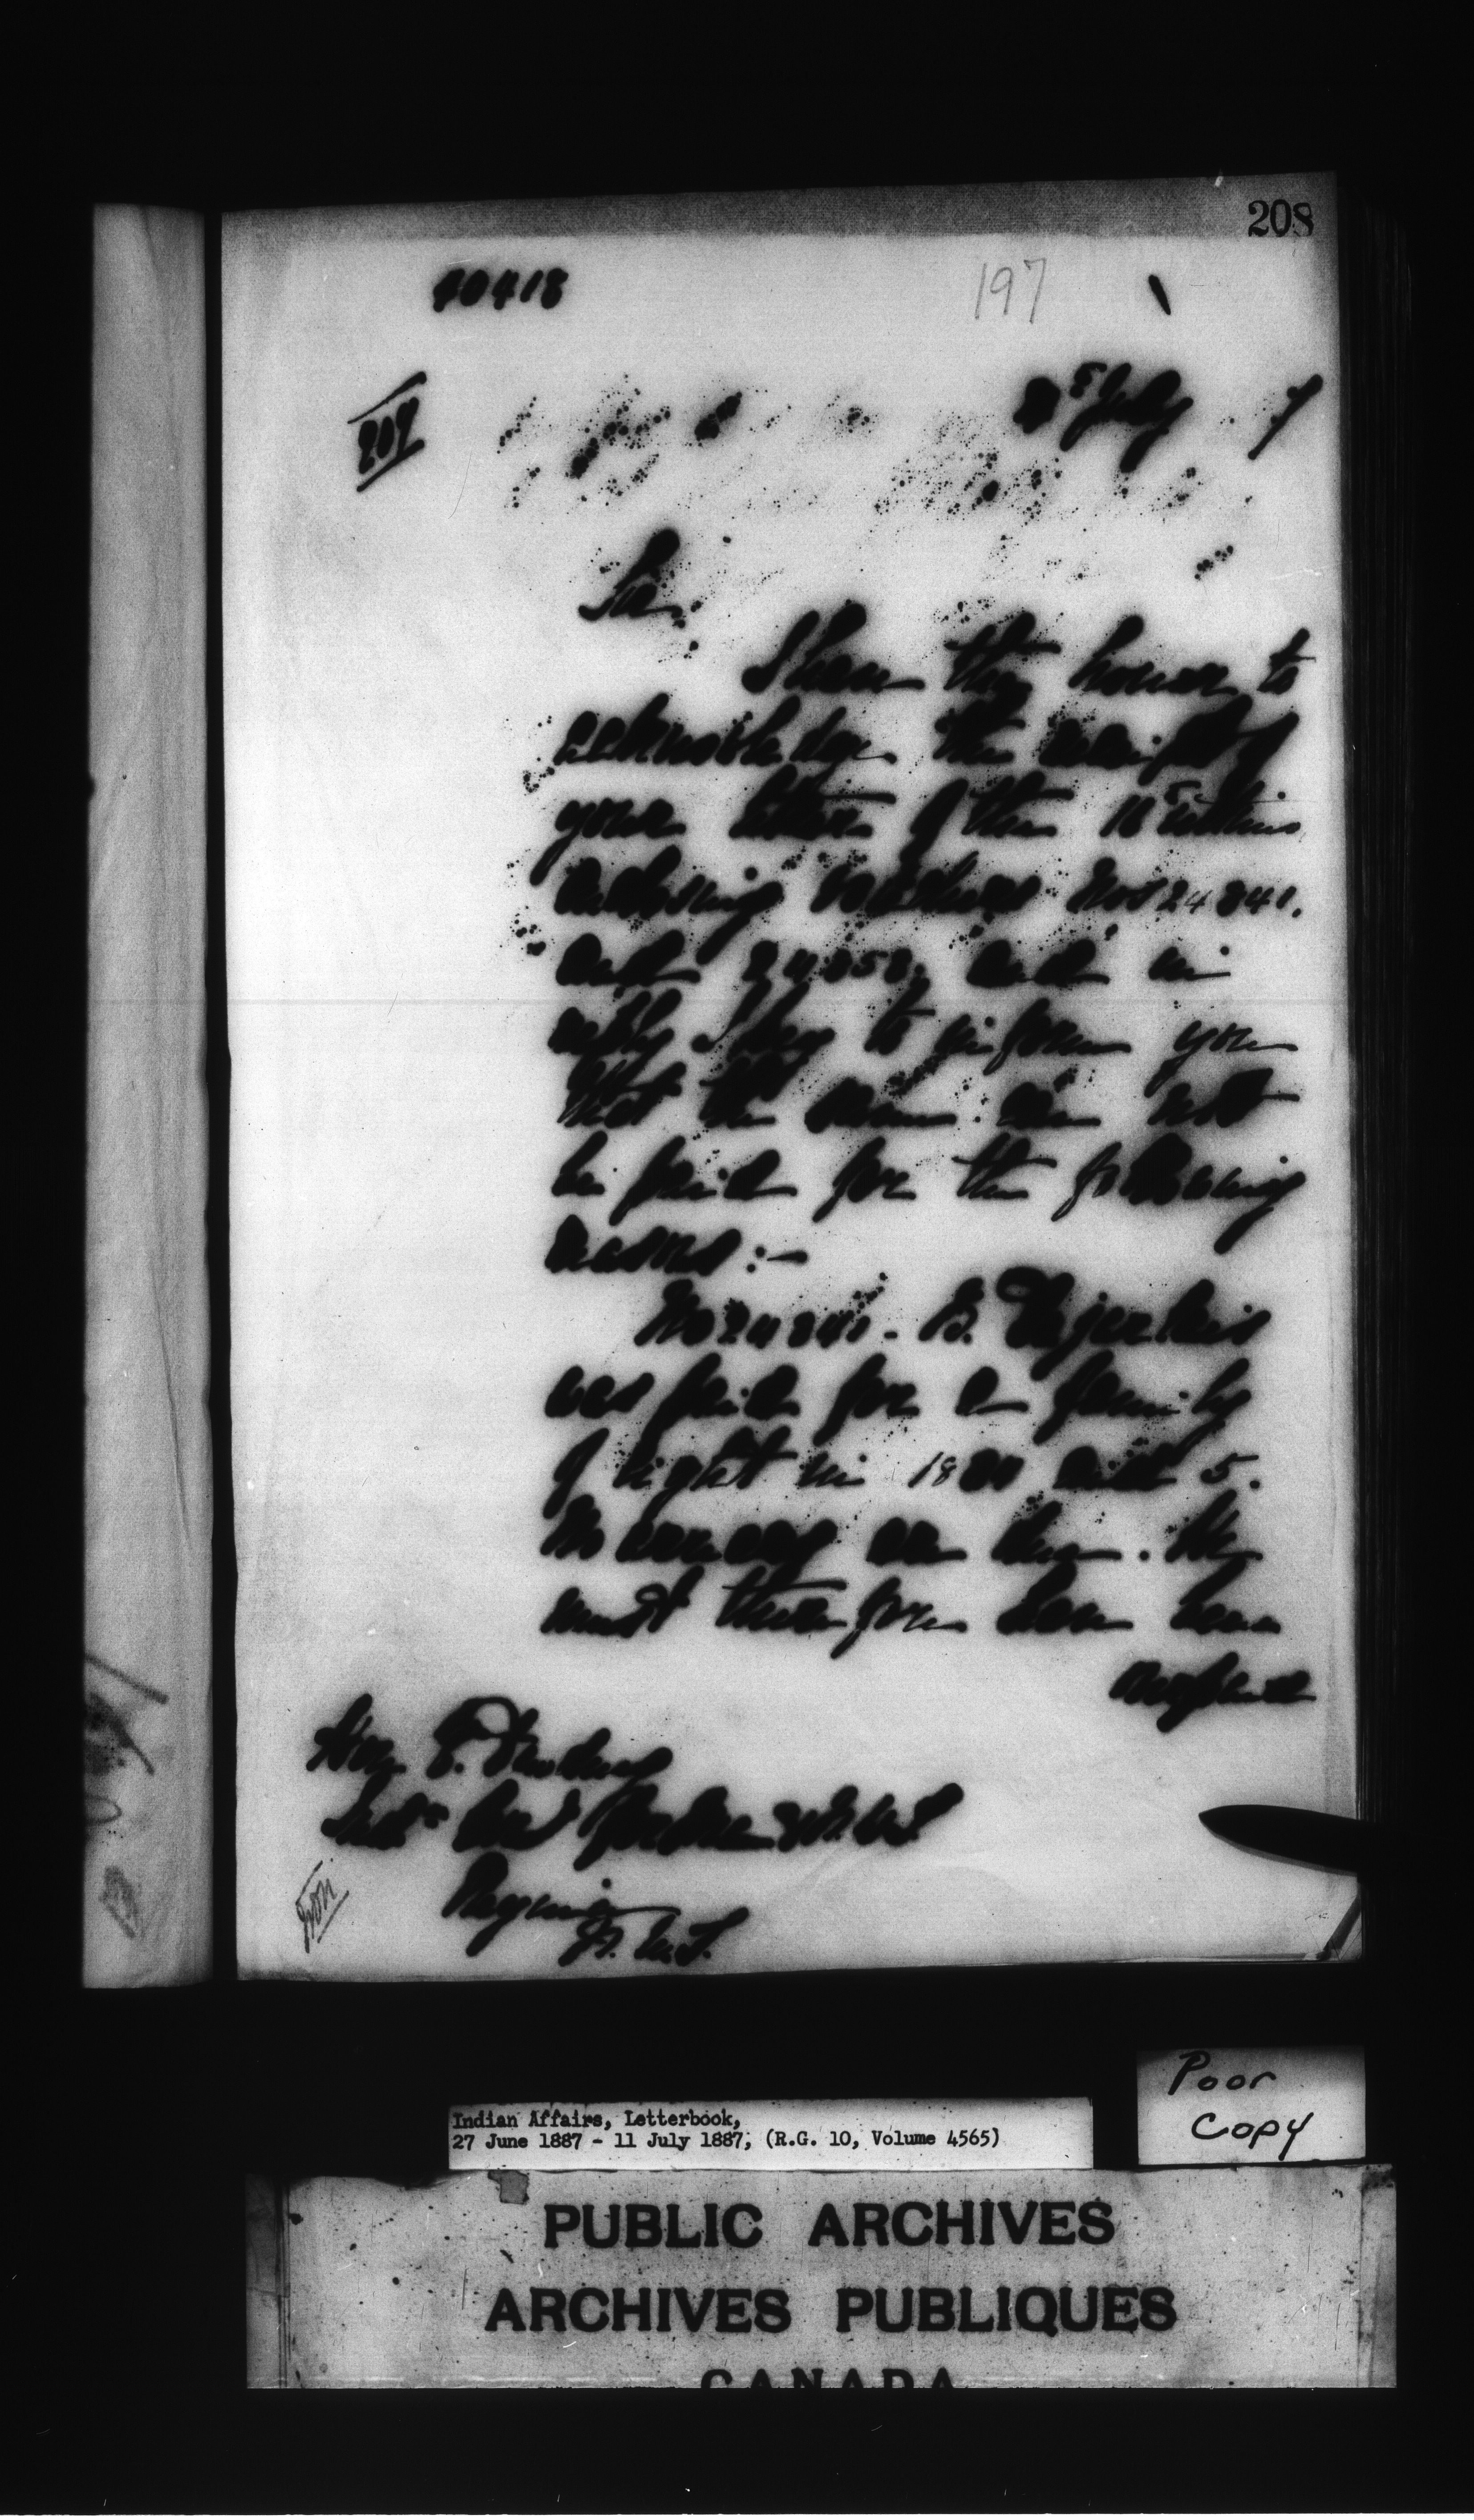 208
40418
197
July 7
Sir,
I have the honour to
acknowledge the receipt of
your letter of the 16th ultimo
enclosing vouchers Nos 24841.
and and in
reply I beg to inform you
that the same can not
be paid for the following
reasons :-
No 24841. B.
was paid for a family
of eight in 188 and 5.
No arrears are due. He
must therefore have been
Hon. E. Dewdney
Indn Com for the N.W.T.
Regina
N.W.T.
Poor
Copy
Indian Affairs, Letterbook,
27 June 1887 - 11 July 1887, (R.G. 10, Volume 4565)
PUBLIC ARCHIVES
ARCHIVES PUBLIQUES
CANADA